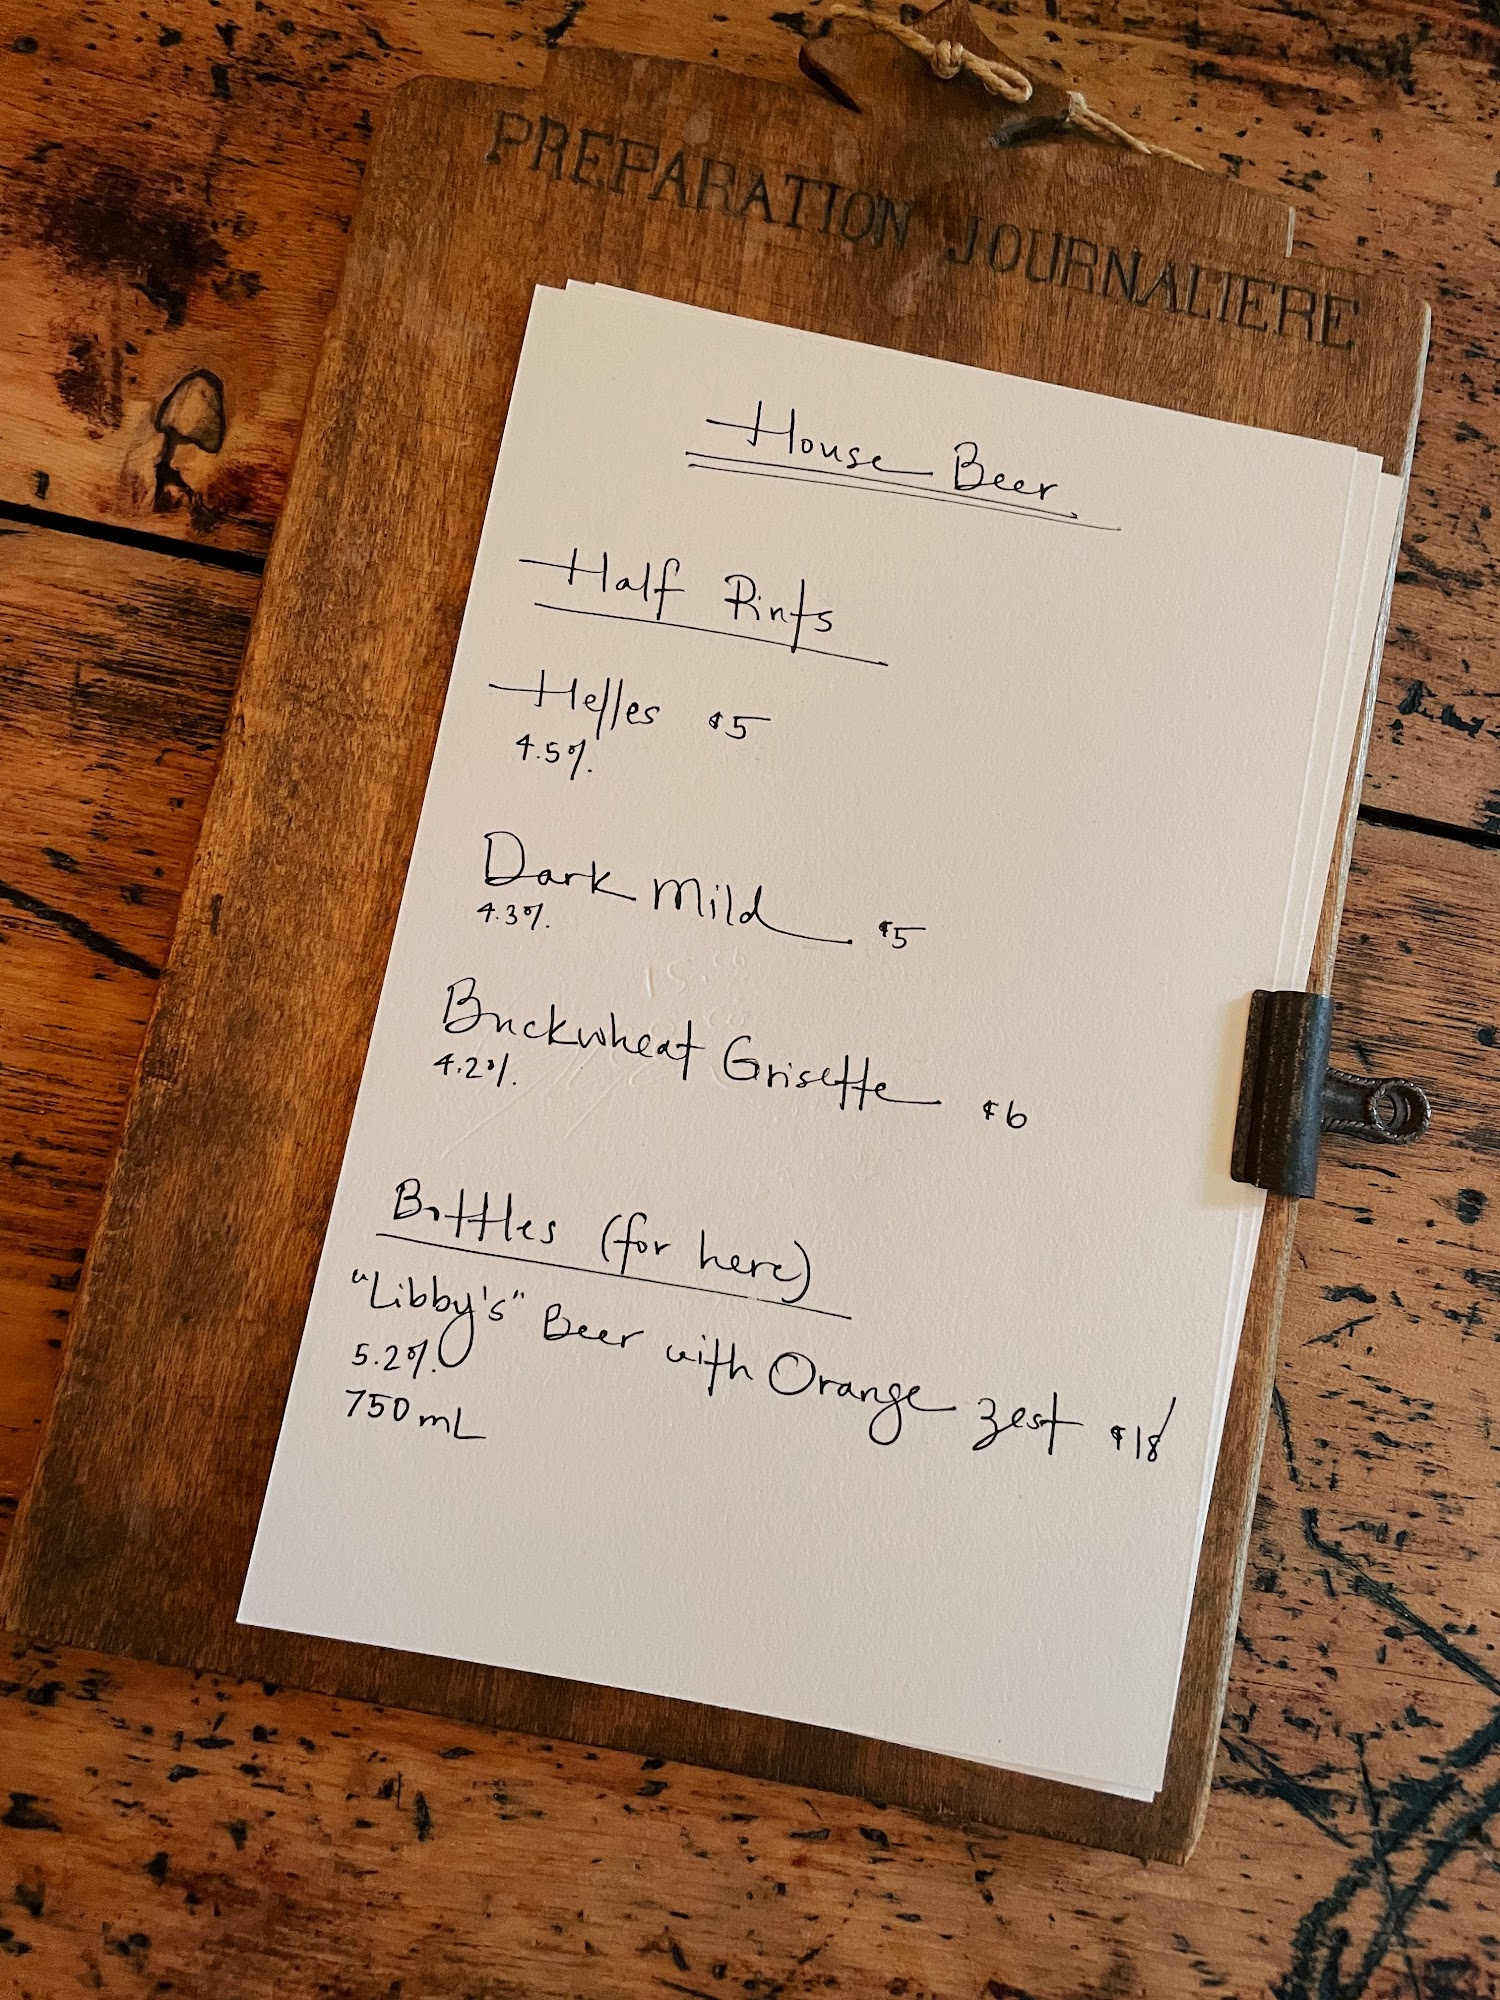 PREPARATION JOURNALIERE
House Beer
Half Pints
Helles $5
4.5%
Dark Mild $5
4.3%
Buckwheat Grisette $6
4.2%
Bottles (for here)
"Libby's" Beer with Orange zest $18
5.2%
750 mL